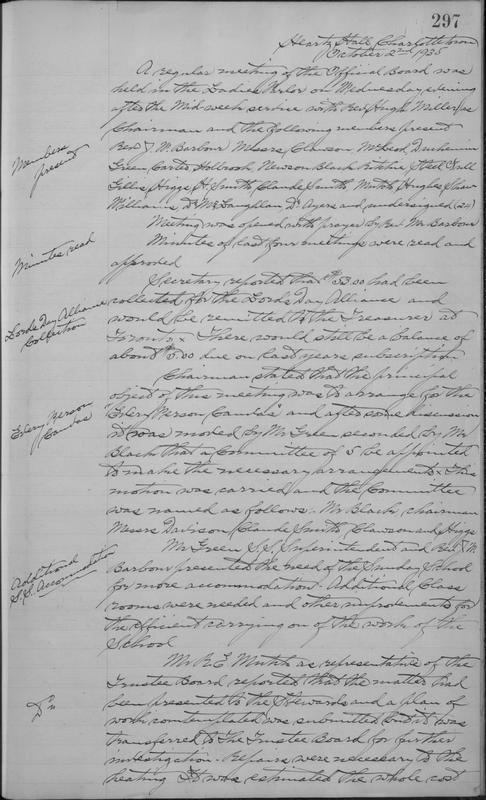 297
Heartz Hall, Charlottetown
October 2nd 1935
A regular meeting of the Official Board was
held in the Ladies Parlor on Wednesday evening
after the Mid-week service with Rev Hugh Miller as
Chairman and the following members present
Members present
Rev J. W. Barbour Messrs Clawson McLeod
Green Carter Holbrook, Newson Black Ritchie Steel Full
Gillis Higgs H. Smith Claude Smith Mutch Hughes Shaw
Williams Dr McLaughlan, Dr Ayers and undersigned (24)
Meeting was opened with prayer by Rev Mr Barbour
Minutes read
Minutes of last four meetings were read and
approved
Secretary reported that $53.00 had been
Lords Day Alliance Collection
collected for the Lords Day Alliance and
would be remitted to the Treasurer at
Toronto x There would still be a balance of
about $5.00 due on last years subscription
Chairman stated that the principal
object of this meeting was to arrange for the
Every Person Canvas
"Every Person Canvas" and after some discussion
it was moved by Mr Green seconded by Mr
Black that a Committee of 5 be appointed
to make the necessary arrangements x This
motion was carried and the Committee
was named as follows. Mr Black, chairman
Messrs Davison, Claude Smith, Clawson and Higgs
Additional S.S. Accomodation
Mr Green S.S. Superintendent and Rev J. W.
Barbour presented the need of the Sunday School
for more accommodation. Additional Class
rooms were needed and other improvements for
the efficient carrying on of the work of the
School
Mr R. E. Mutch as representative of the
Trustee Board reported that the matter had
Do
been presented to the Stewards and a plan of
work contemplated was submitted but it was
transferred to the Trustee Board for further
investigation. Repairs were necessary to the
heating It was estimated the whole cost